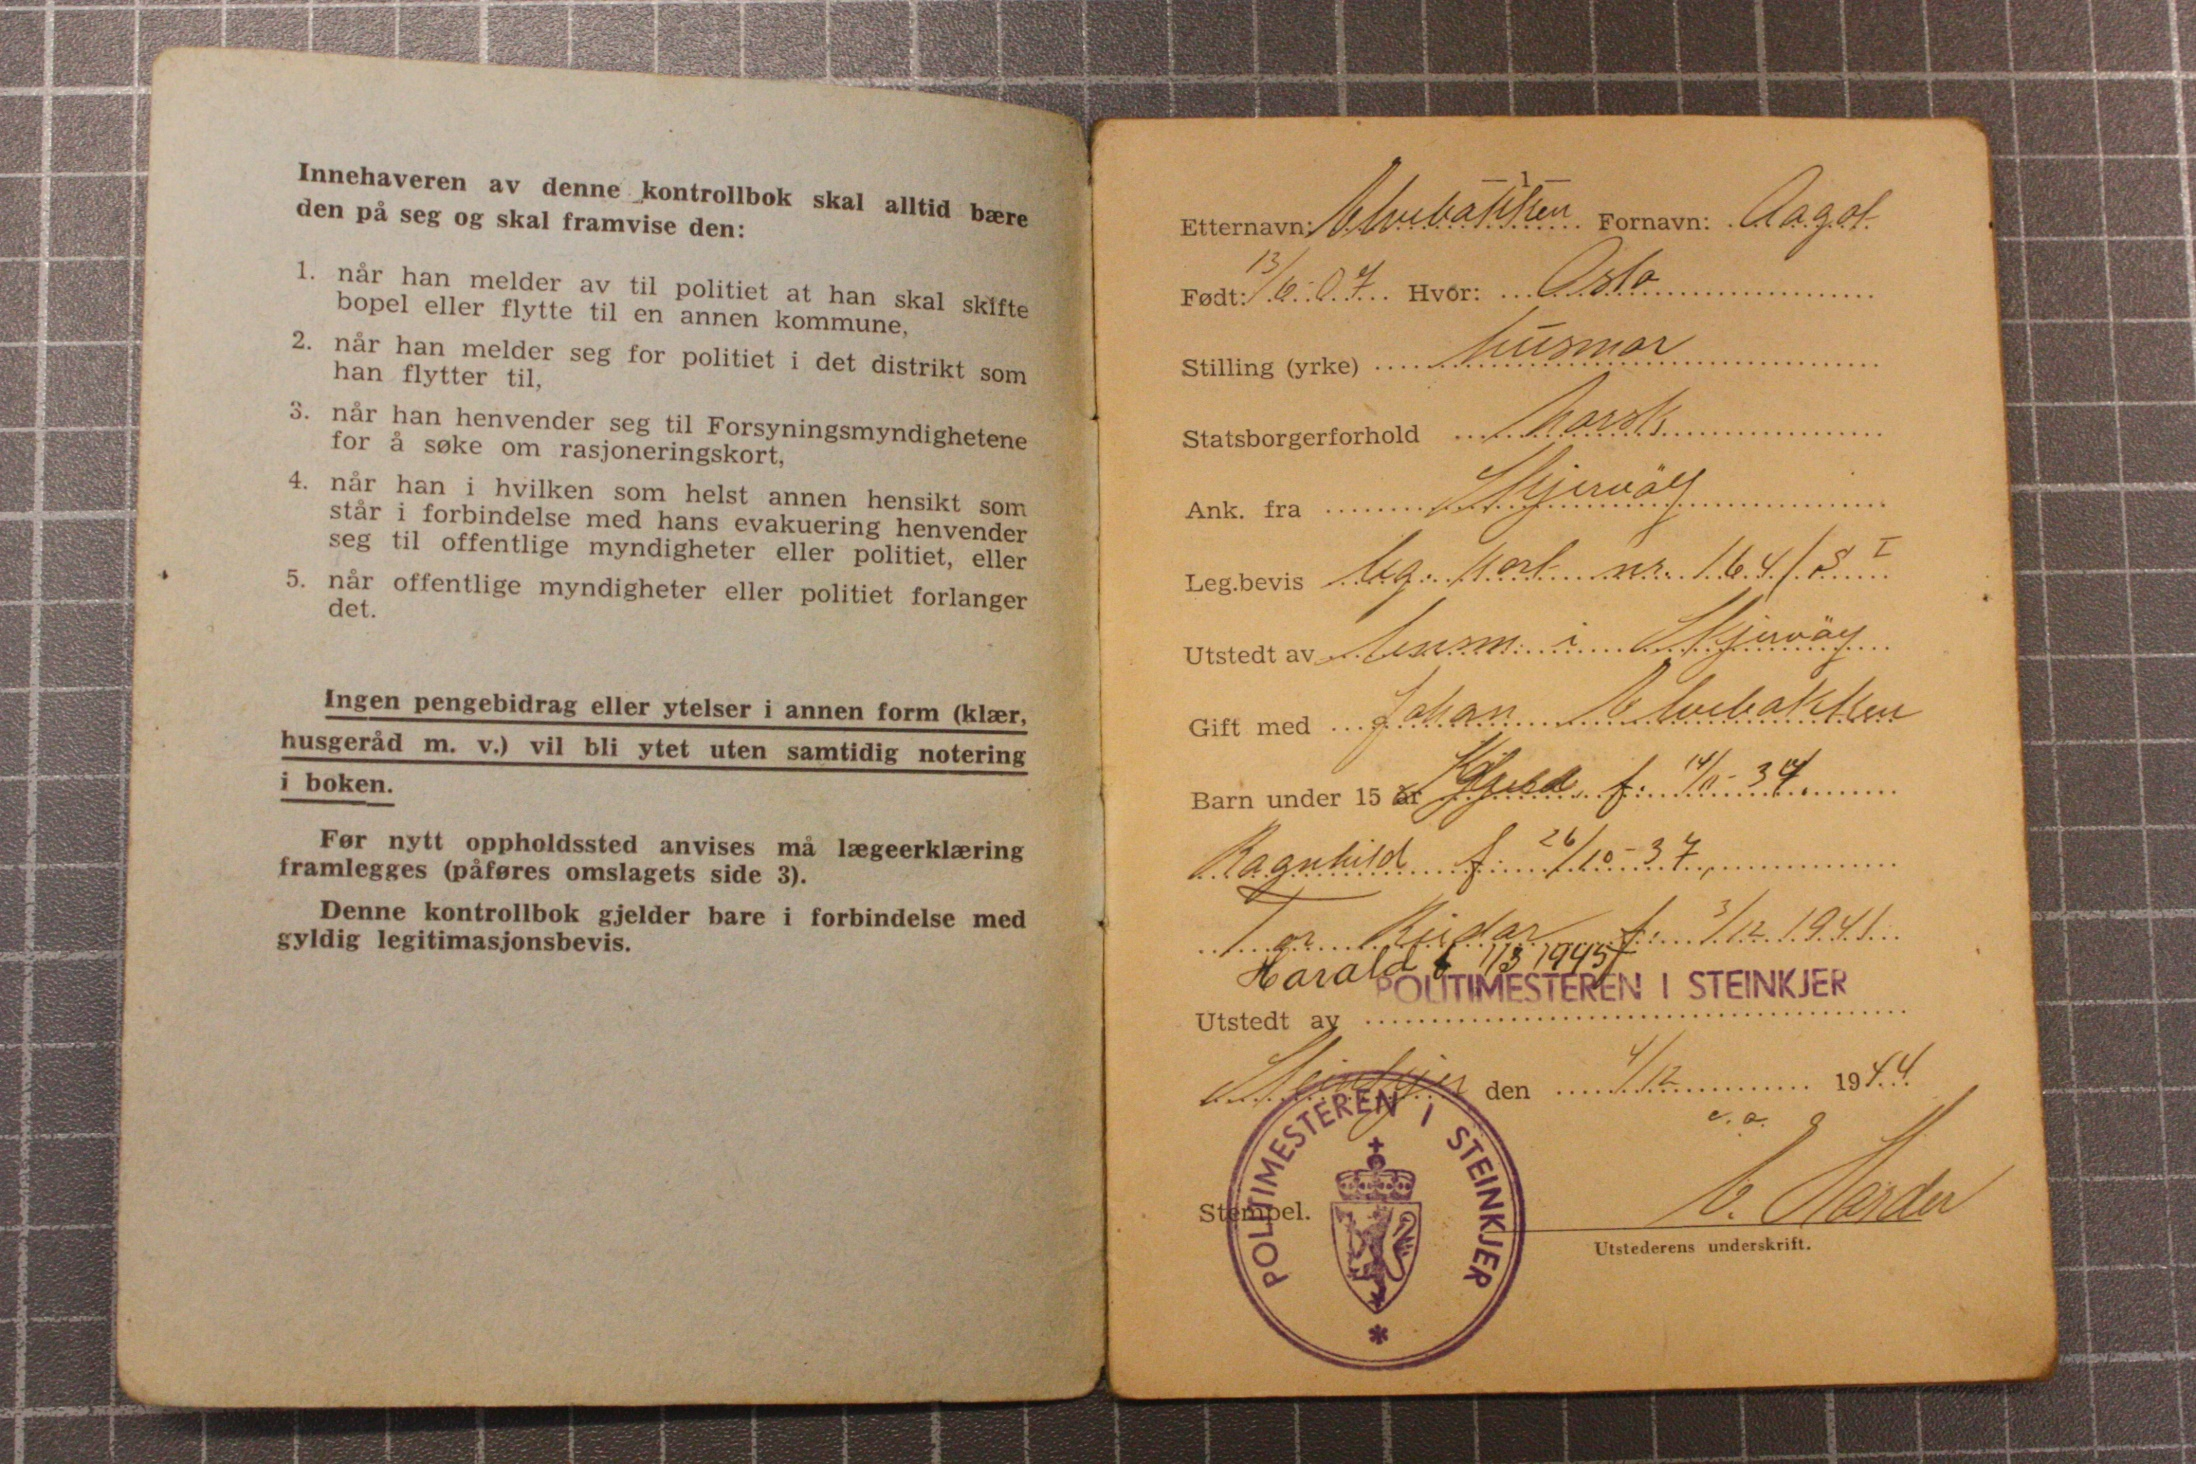 Innehaveren av denne kontrollbok skal alltid bære
den på seg og skal framvise den:
1. når han melder av til politiet at han skal skifte
bopel eller flytte til en annen kommune,
2. når han melder seg for politiet i det distrikt som
han flytter til,
3. når han henvender seg til Forsyningsmyndighetene
for å søke om rasjoneringskort,
4. når han i hvilken som helst annen hensikt som
står i forbindelse med hans evakuering henvender
seg til offentlige myndigheter eller politiet, eller
5. når offentlige myndigheter eller politiet forlanger
det.
Ingen pengebidrag eller ytelser i annen form (klær,
husgeråd m. v.) vil bli ytet uten samtidig notering
i boken.
Før nytt oppholdssted anvises må lægeerklæring
framlegges (påføres omslagets side 3).
Denne kontrollbok gjelder bare i forbindelse med
gyldig legitimasjonsbevis.
— 1 —
Etternavn: Elvebakken Fornavn: Aagot
Født: 13/6-07 Hvor: Oslo
Stilling (yrke) husmor
Statsborgerforhold norsk
Ank. fra Skjervöy
Leg.bevis leg. kort nr. 164/S I
Utstedt av lensm. i Skjervöy
Gift med Johan Elvebakken
Barn under 15 år f. 14/11-34
Ragnhild f. 26/10-37,
Tor Reidar f. 3/12 1941
Harald f 1/3 1945
POLITIMESTEREN I STEINKJER
Utstedt av
Steinkjer den 4/12 1944
e. o.
E. Harder
Stempel.
Utstederens underskrift.
POLITIMESTEREN I STEINKJER